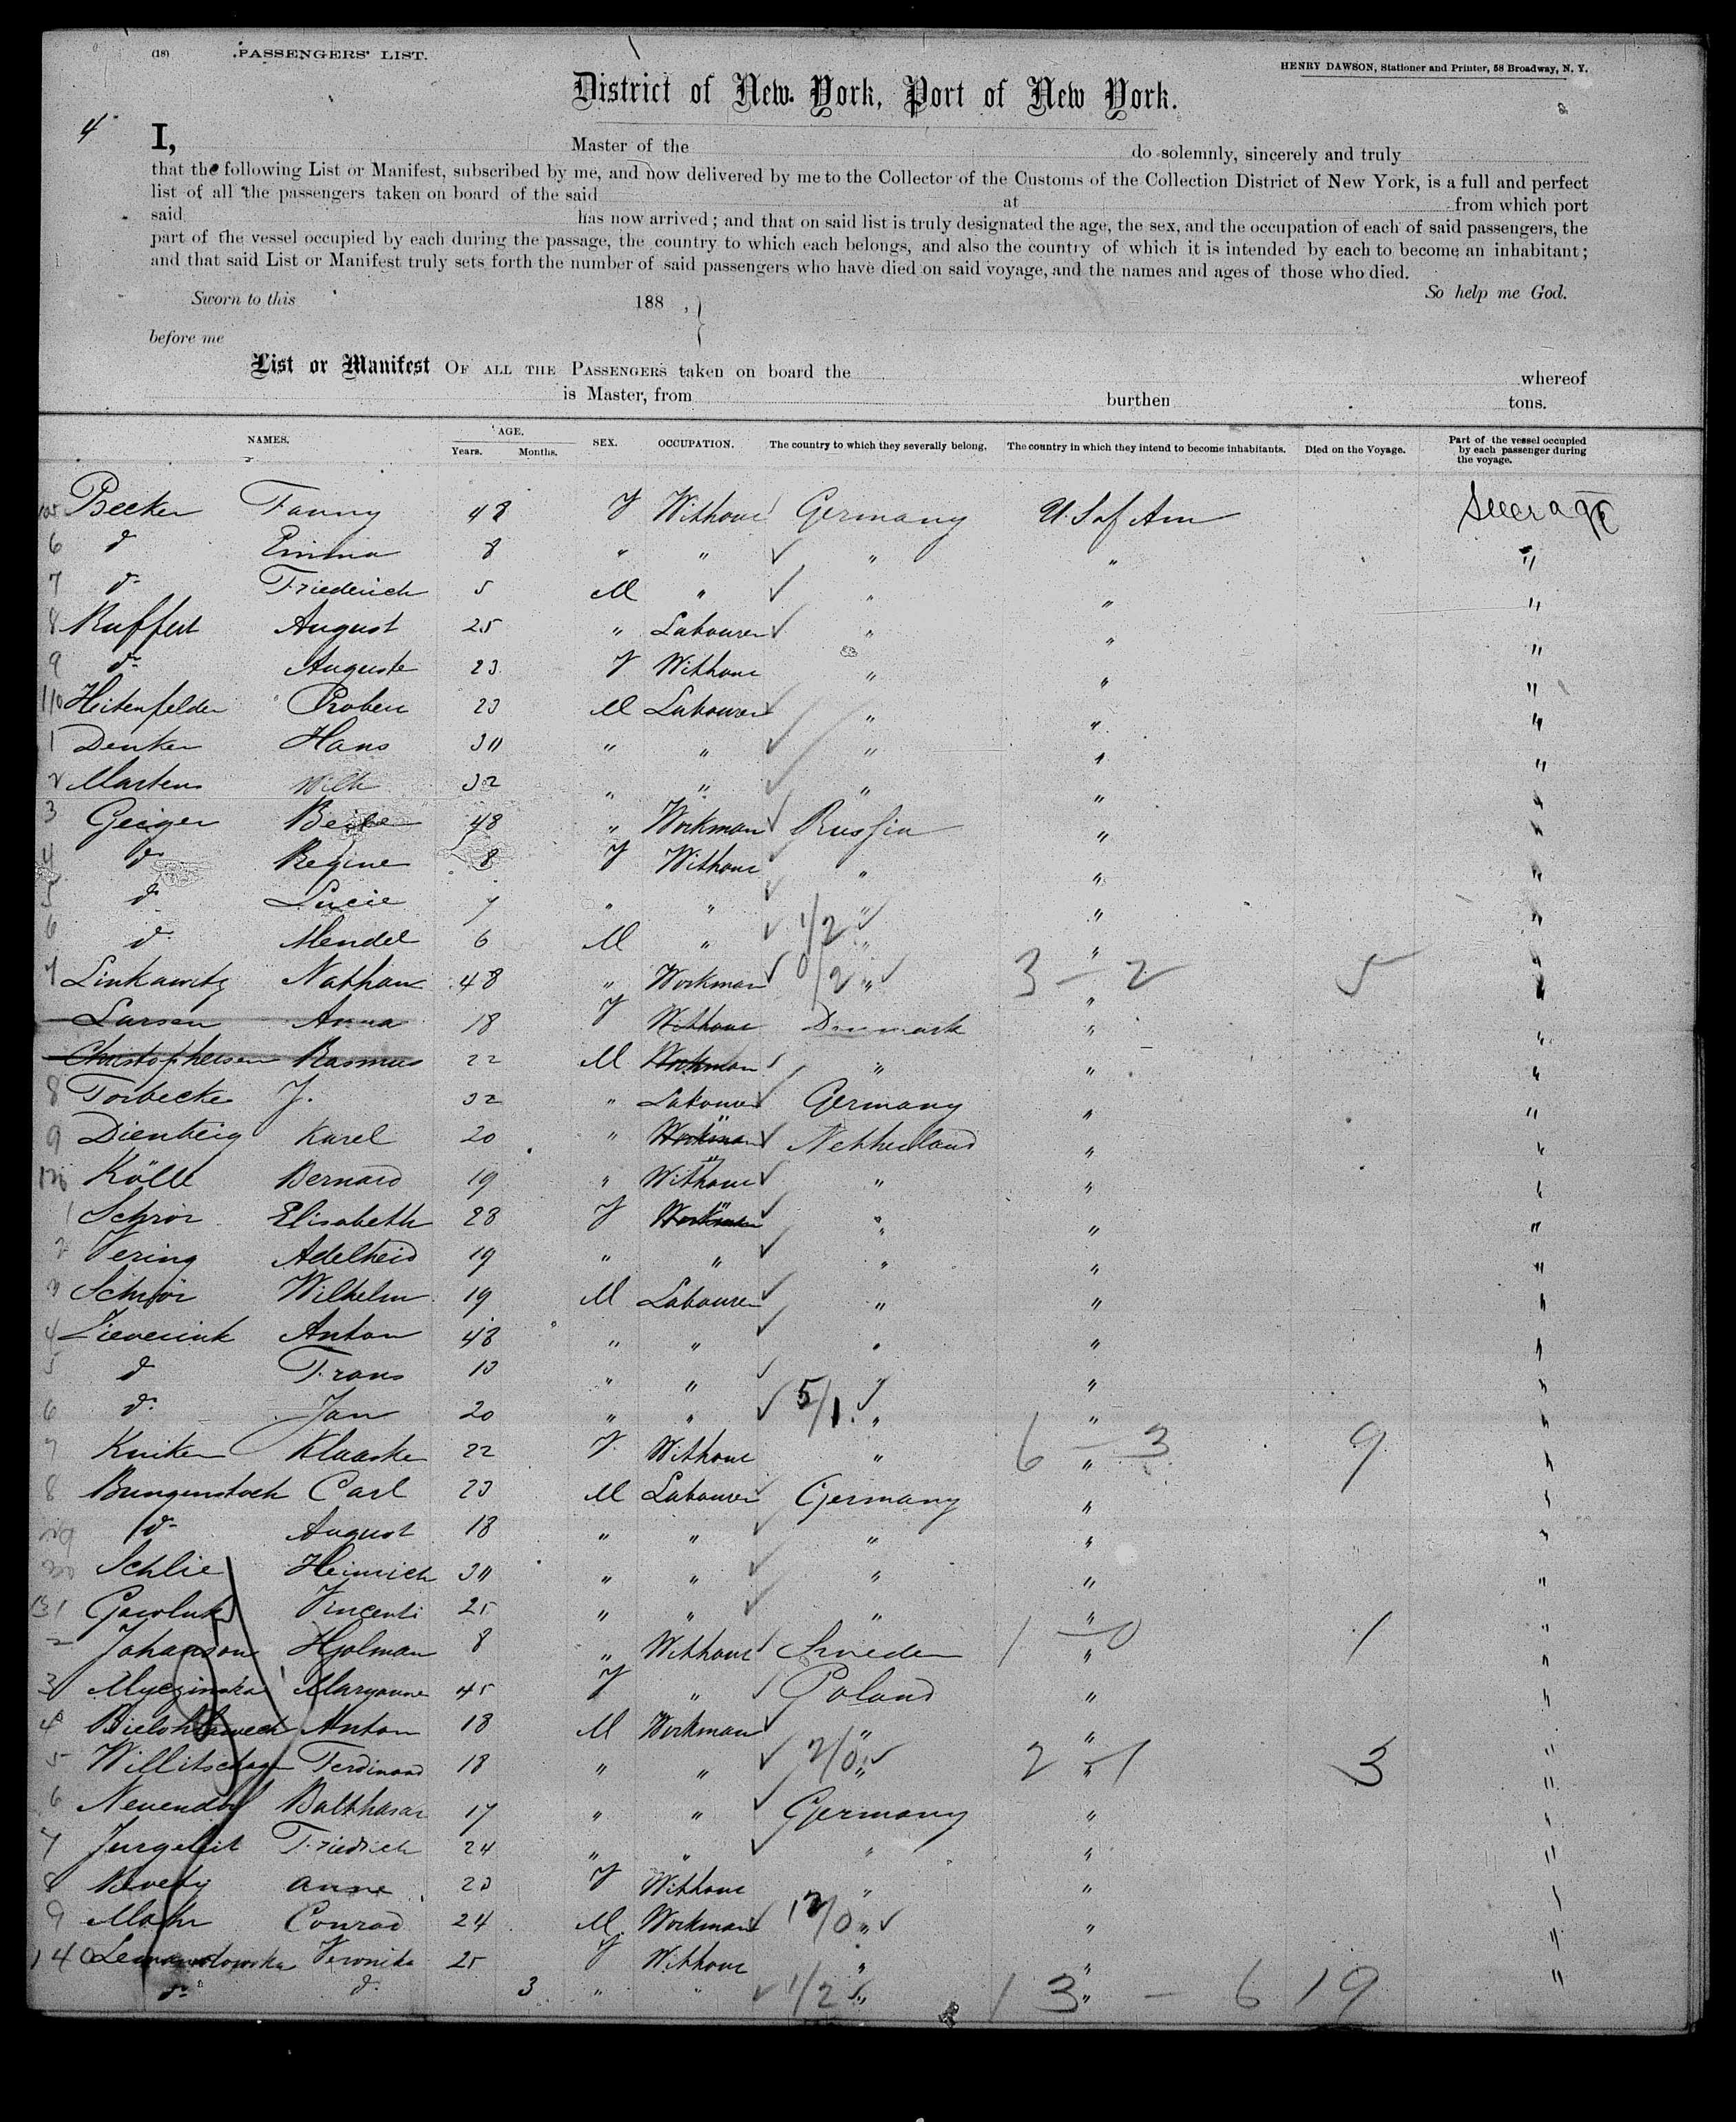 (18) PASSENGERS' LIST.
HENRY DAWSON, Stationer and Printer, 58 Broadway, N. Y.
District of New York, Port of New York.
4
I, Master of the do solemnly, sincerely and truly
that the following List or Manifest, subscribed by me, and now delivered by me to the Collector of the Customs of the Collection District of New York, is a full and perfect
list of all the passengers taken on board of the said at from which port
said has now arrived; and that on said list is truly designated the age, the sex, and the occupation of each of said passengers, the
part of the vessel occupied by each during the passage, the country to which each belongs, and also the country of which it is intended by each to become an inhabitant;
and that said List or Manifest truly sets forth the number of said passengers who have died on said voyage, and the names and ages of those who died.
So help me God.
Sworn to this 188 , }
before me
List or Manifest OF ALL THE PASSENGERS taken on board the whereof
is Master, from burthen tons.
NAMES. AGE. Years. Months. SEX. OCCUPATION. The country to which they severally belong. The country in which they intend to become inhabitants. Died on the Voyage. Part of the vessel occupied by each passenger during the voyage.
105 Becker Fanny 48 F Without Germany U.S of Am Steerage
6 d Emma 8 " " " " "
7 d Friederich 5 M " " " "
8 Ruffert August 25 " Labourer " " "
9 d Auguste 23 F Without " " "
110 Heitenfelder Robert 23 M Labourer " " "
1 Denker Hans 30 " " " " "
2 Martens Wilh 32 " " " " "
3 Geiger 48 " Workman Russia " "
4 d Regine 8 F Without " " "
5 d Lucie 7 " " " " "
6 d Mendel 6 M " " " "
7 Linkawitz Nathan 48 " Workman " 3 - 2 " 5 "
Larsen Anna 18 F Without Denmark " "
Christophersen Rasmus 22 M Workman " " "
8 Torbecke J. 32 " Labourer Germany " "
9 Karel 20 " Workman Netherland " "
120 Kölle Bernard 19 " Without " " "
1 Schror Elisabeth 28 F Workman " " "
2 Vering Adelheid 19 " " " " "
3 Schror Wilhelm 19 M Labourer " " "
4 Lieverink Anton 48 " " " " "
5 d Frans 13 " " " " "
6 d Jan 20 " " 5/1 " " "
7 Kniken Klaaske 22 F Without " 6 - 3 " 9 "
8 Bungenstock Carl 23 M Labourer Germany " "
129 d August 18 " " " " "
30 Schlie Heinrich 30 " " " " "
131 Vincenti 25 " " " " "
2 Johanson Hjalman 8 " Without Sweden 1 - 0 " 1 "
3 Myczinska Maryanne 45 F " Poland " "
4 Anton 18 M Workman " " "
5 Ferdinand 18 " " 2/0 " 2 - 1 " 3 "
6 Neuendorf Balthasar 17 " " Germany " "
7 Jurgeleit Friedrich 24 " " " " "
8 Anne 23 F Without " " "
9 Mohr Conrad 24 M Workman 12/0 " " "
140 Veronika 25 F Without " " "
d d 3 " " 1/2 " 13 " - 6 19